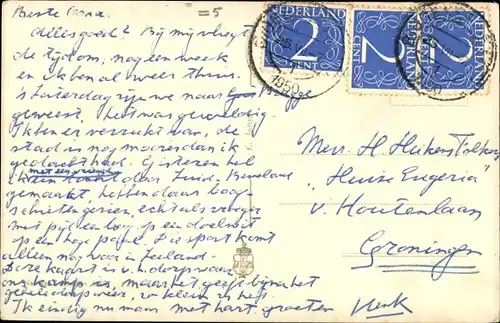 Beste Oma.
Alles goed? Bij mij vliegt
de tijd om, nog een week
en ik ben al weer thuis.
's Zaterdags zijn we naar Brugge
geweest, het was geweldig.
Ik ben er verrukt van, de
stad is nog mooier dan ik
gedacht had. Gisteren heb
met een vriend
ik een tocht door Zuid-Beveland
gemaakt. Hebben daar boog-
schieten gezien, echt als vroeger
met pijl en boog op een doelwit
op een hoge paal. Die sport komt
alleen nog voor in Zeeland.
Deze kaart is v. h. dorp waar
ons kamp is, maar het geeft bijna het
gehele dorp weer, zo klein is het.
Ik eindig nu maar met hart. groeten
Henk
=5
NEDERLAND
2
CENT
NEDERLAND
2
CENT
NEDERLAND
2
CENT
1950
Mevr. H. Hukens
"Huize Eugeria"
v. Houtenlaan
Groningen